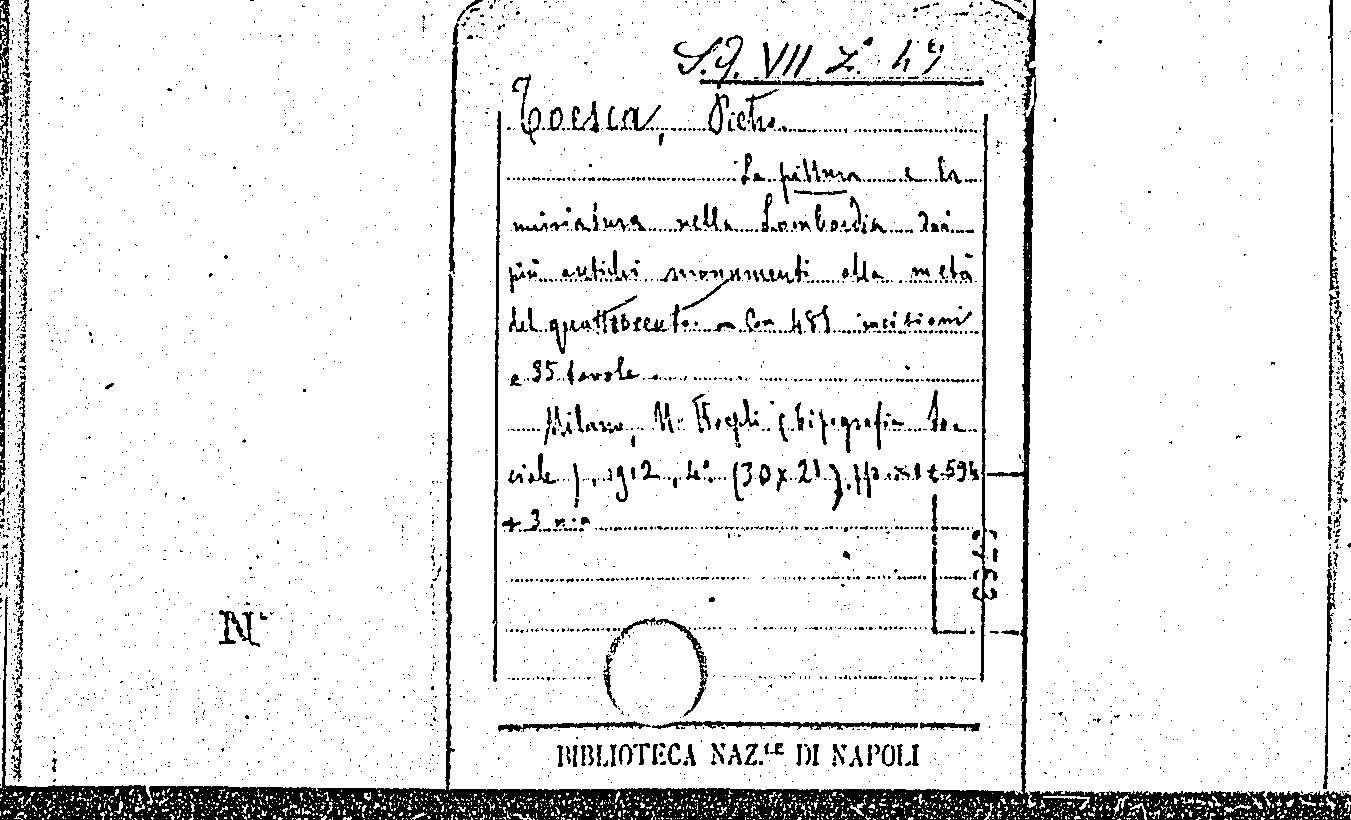 S.Q. VII Z° 49
Toesca, Pietro.
La pittura e la
miniatura nella Lombardia dai
più antichi monumenti alla metà
del quattrocento. Con 481 incisioni
e 35 tavole.
Milano, U. Hoepli (tipografia So-
ciale), 1912, 4°. (30x21), pp. 594
+ 3 nn
N°
BIBLIOTECA NAZ.LE DI NAPOLI